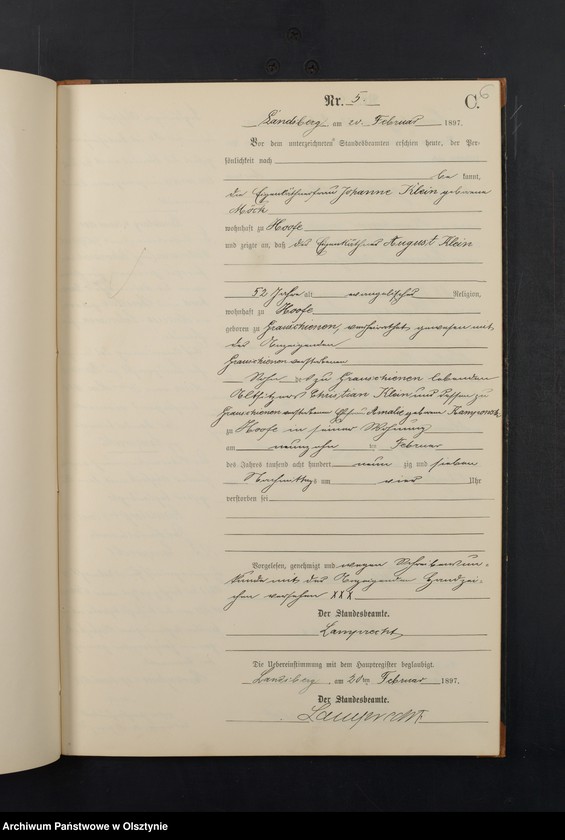 6
Nr. 5.
C.
Landsberg am 20. Februar 1897.
Vor dem unterzeichneten Standesbeamten erschien heute, der Per-
sönlichkeit nach
be kannt,
die Eigenkäthnerfrau Johanne Klein geborene
Möck
wohnhaft zu Hoofe
und zeigte an, daß der Eigenkäthner August Klein
52 Jahre alt evangelischer Religion,
wohnhaft zu Hoofe
geboren zu Grauschienen, verheirathet gewesen mit
der Anzeigenden
Grauschienen verstorbenen
Sohn des zu Grauschienen lebenden
Altsitzers Christian Klein und dessen zu
Grauschienen verstorbenen Ehefrau Amalie geborene
zu Hoofe in seiner Wohnung
am neunzehn ten Februar
des Jahres tausend acht hundert neun zig und sieben
Nachmittags um vier Uhr
verstorben sei
Vorgelesen, genehmigt und wegen Schreibensun-
kunde mit der Anzeigenden Handzei-
chen versehen XXX
Der Standesbeamte.
Lamprecht
Die Uebereinstimmung mit dem Hauptregister beglaubigt.
Landsberg, am 20ten Februar 1897.
Der Standesbeamte.
Lamprecht
Archiwum Państwowe w Olsztynie